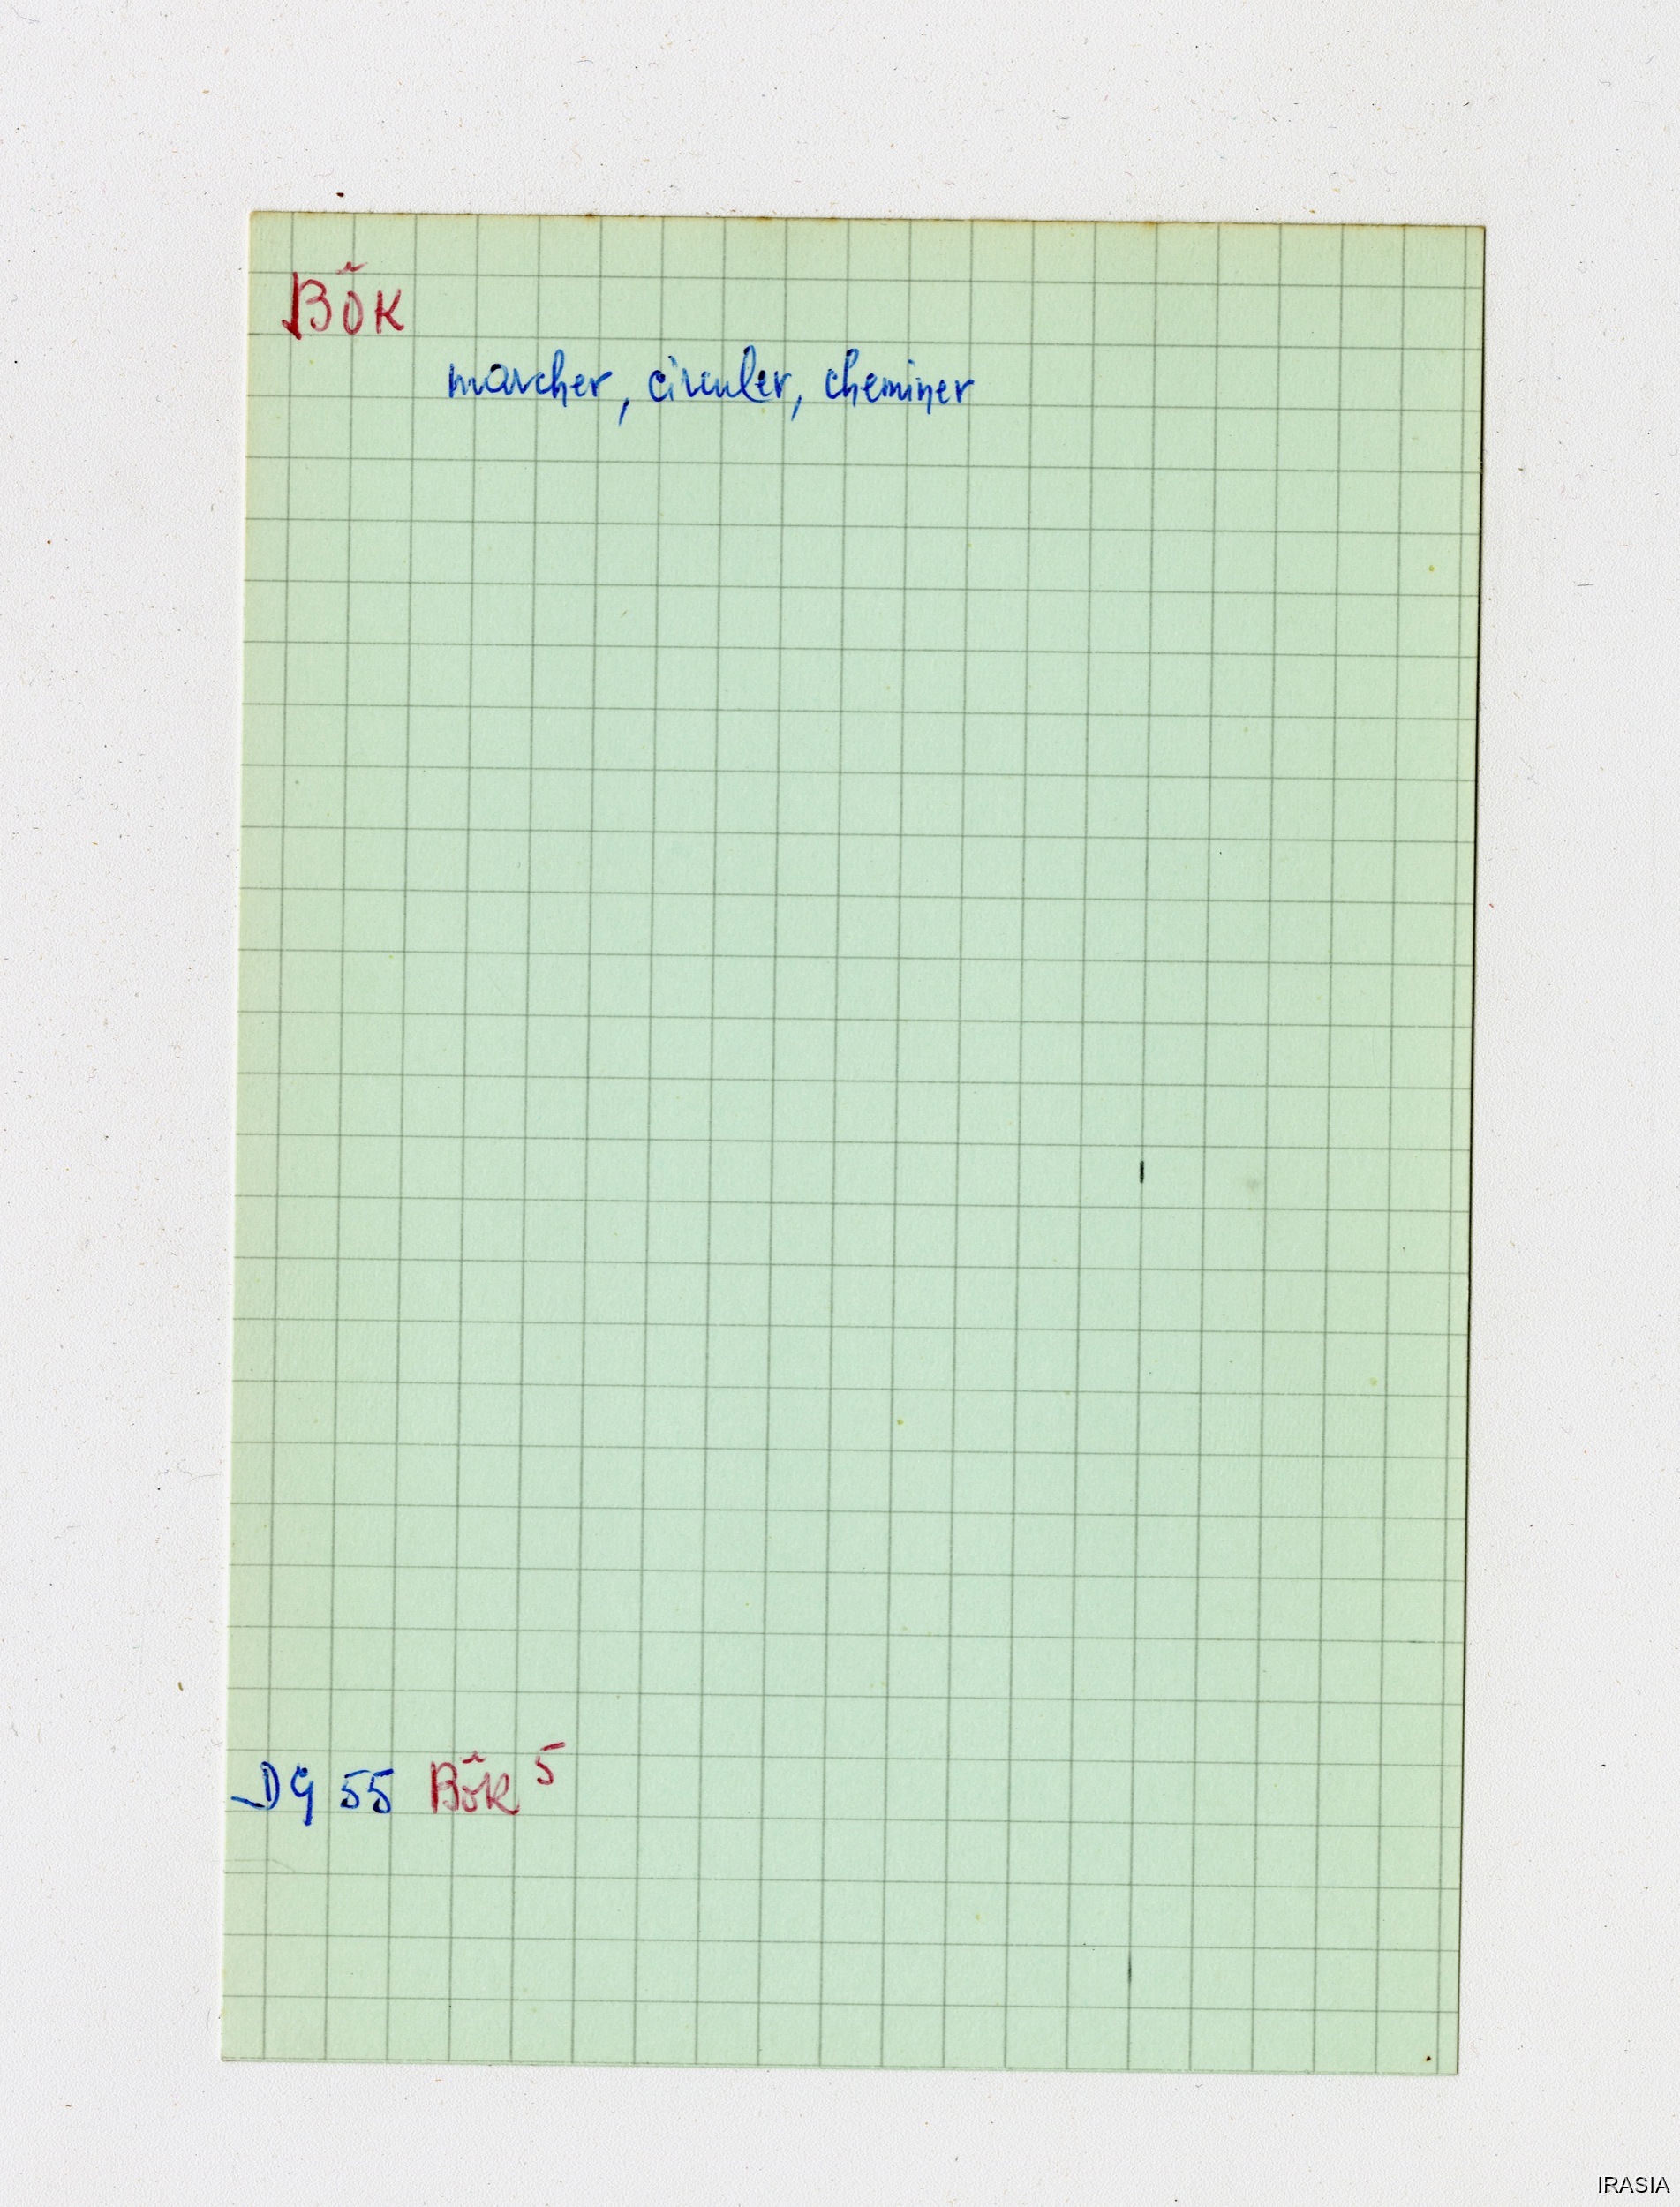 BÔK
marcher, circuler, cheminer
DG 55 Bôk 5
IRASIA